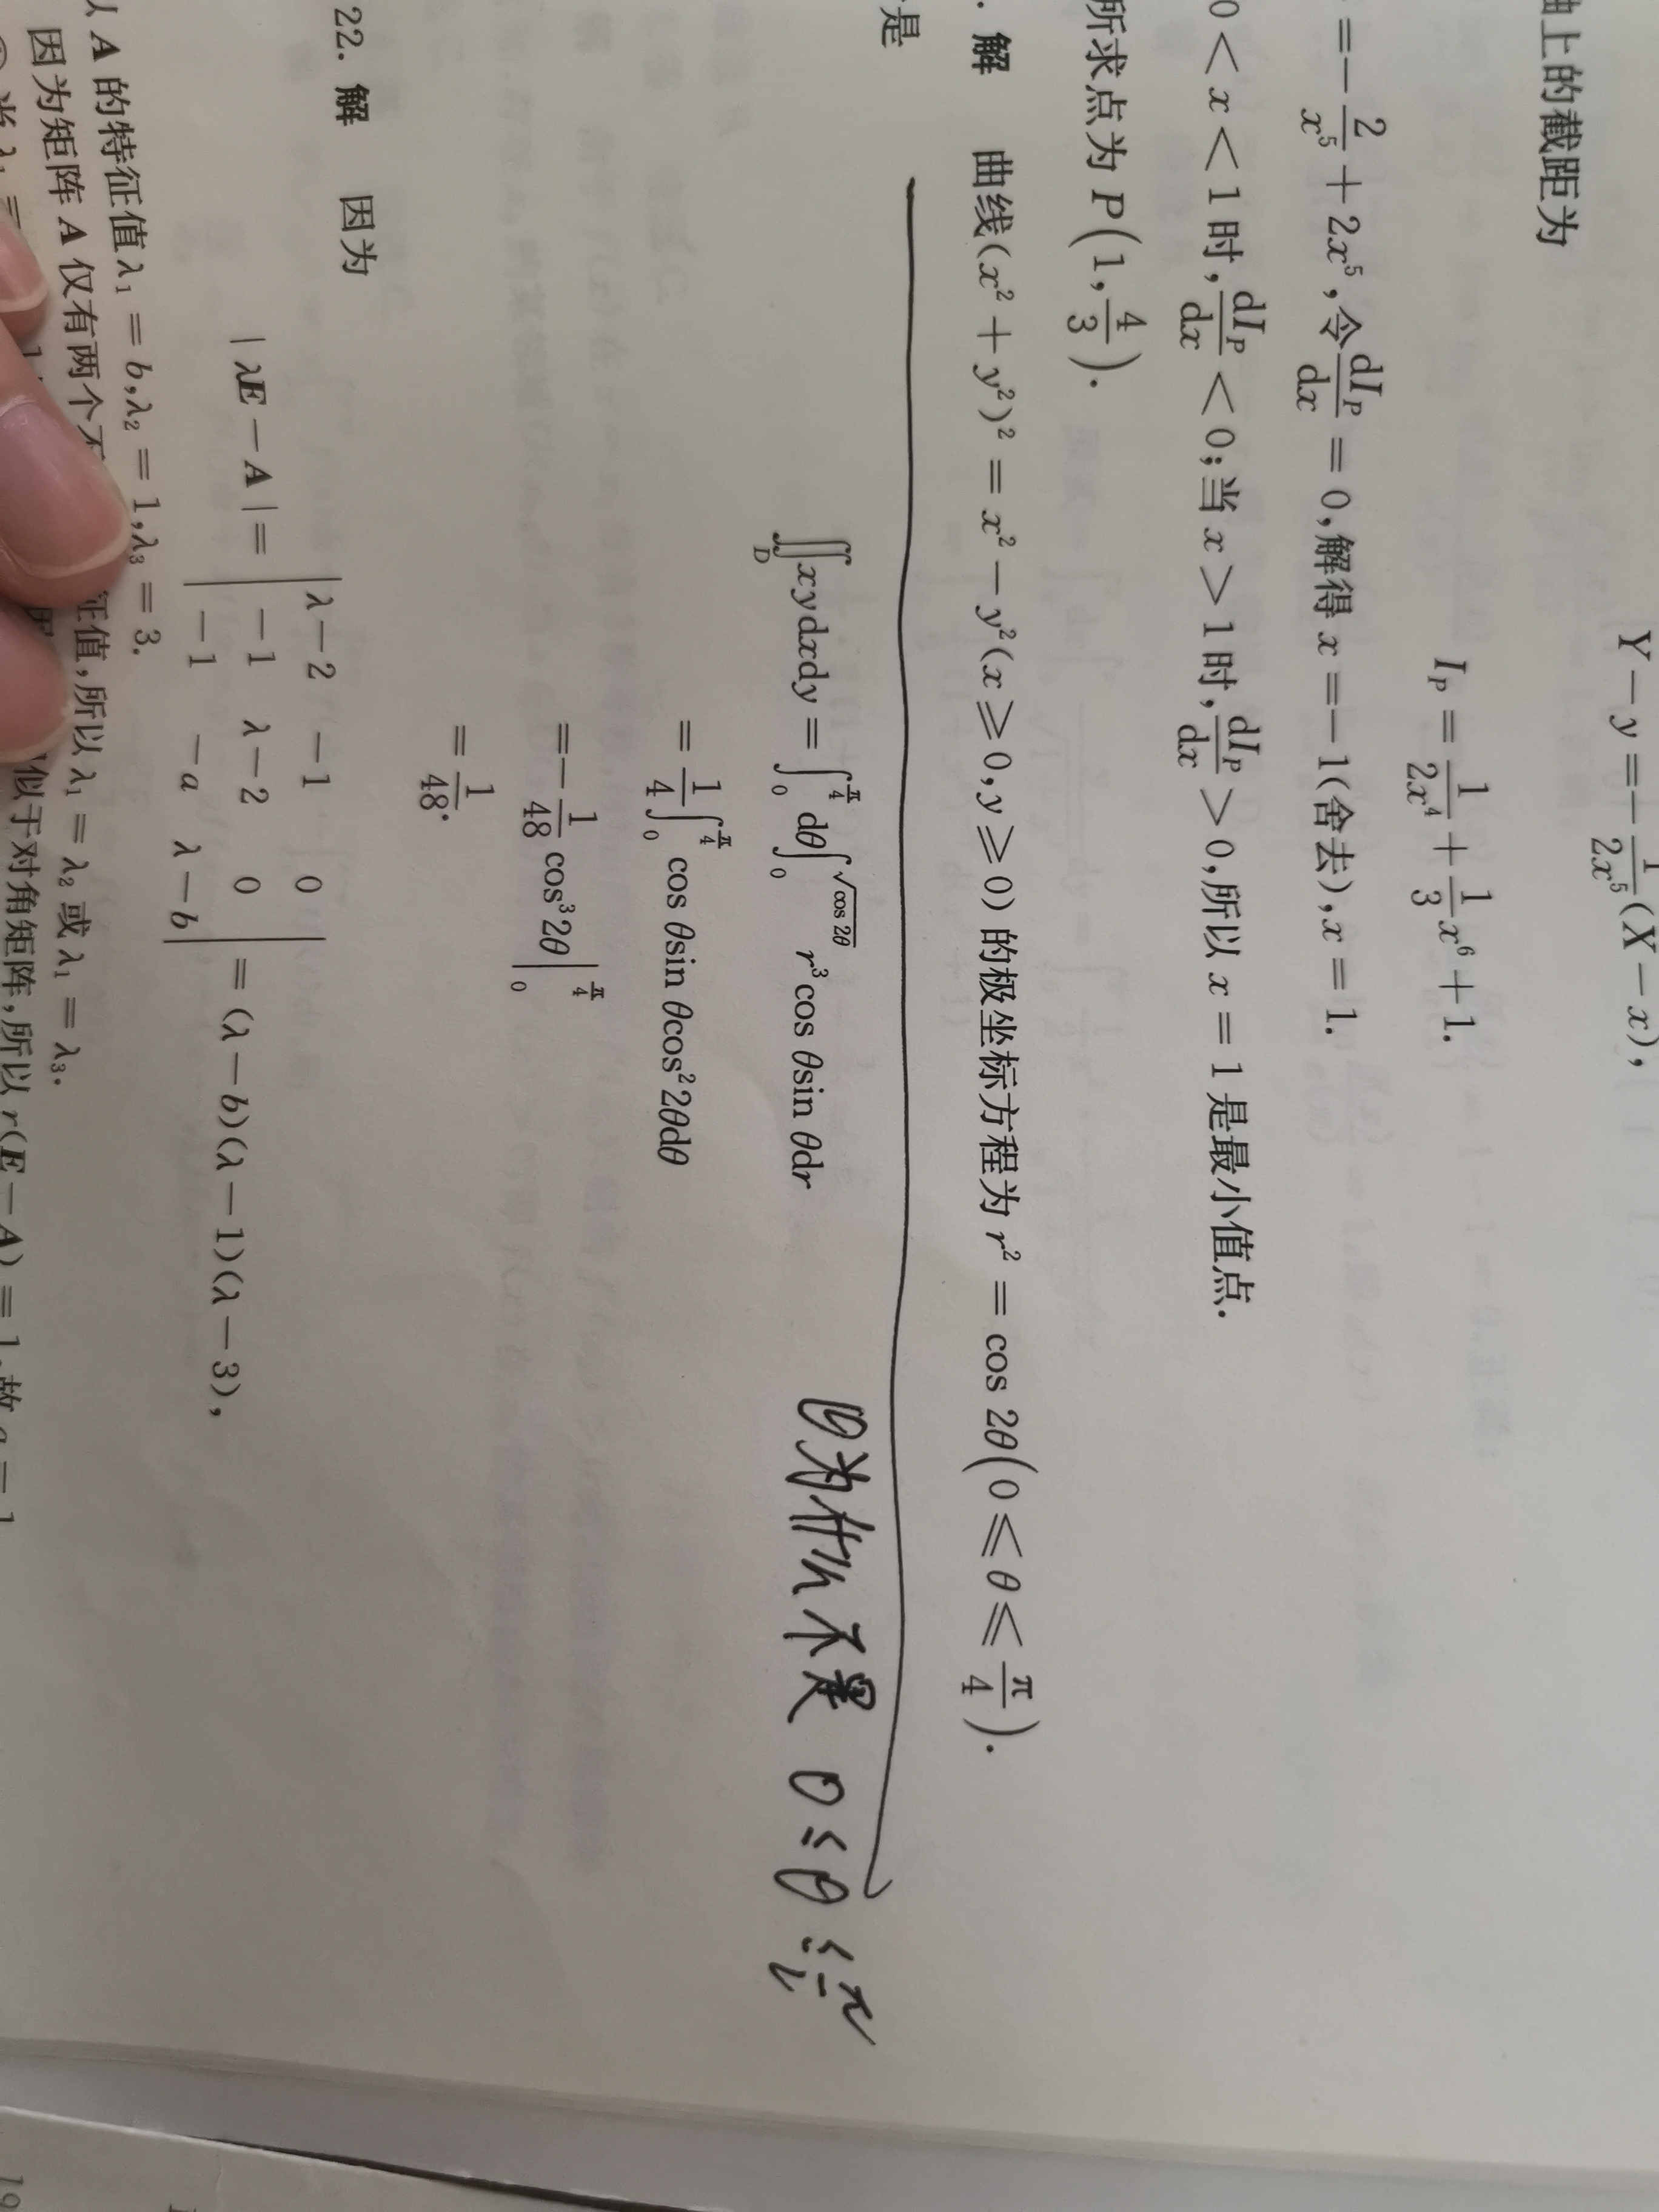 Y－y＝－1/(2x⁵)(X－x),
轴上的截距为
I_P＝1/(2x⁴)＋(1/3)x⁶＋1.
＝－2/x⁵＋2x⁵,令dI_P/dx＝0,解得 x＝－1(舍去),x＝1.
0＜x＜1时,dI_P/dx＜0;当 x＞1时,dI_P/dx＞0,所以 x＝1是最小值点.
所求点为 P(1,4/3).
. 解 曲线(x²＋y²)²＝x²－y²(x≥0,y≥0)的极坐标方程为 r²＝cos 2θ(0≤θ≤π/4).
是
∬_D xydxdy＝∫₀^{π/4} dθ∫₀^{√cos 2θ} r³cos θsin θdr
因为什么不是 0≤θ≤π/2
＝(1/4)∫₀^{π/4} cos θsin θcos²2θdθ
＝－(1/48)cos³2θ|₀^{π/4}
＝1/48.
22. 解 因为
|λE－A|＝|λ－2 －1 0|
|－1 λ－2 0|＝(λ－b)(λ－1)(λ－3),
|－1 －a λ－b|
A 的特征值λ₁＝b,λ₂＝1,λ₃＝3.
因为矩阵 A 仅有两个不 征值,所以λ₁＝λ₂或λ₁＝λ₃.
似于对角矩阵,所以 r(E－A)＝1,故a＝1